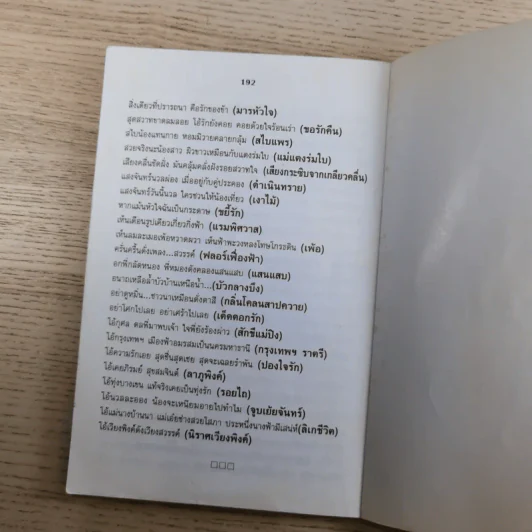 192
สิ่งเดียวที่ปรารถนา คือรักของข้า (มารหัวใจ)
สุดสวาทขาดลมลอย โอ้รักยังคอย คอยด้วยใจร้อนเร่า (ขอรักคืน)
สไบน้องแทนกาย หอมมิวายคลายกลุ้ม (สไบแพร)
สวยจริงนะน้องสาว ผิวขาวเหมือนกับแตงร่มใบ (แม่แตงร่มใบ)
เสียงคลื่นซัดฝั่ง มันคลุ้มคลั่งฝั่งรอยสวาทใจ (เสียงกระซิบจากเกลียวคลื่น)
แสงจันทร์นวลผ่อง เมื่ออยู่กับคู่ประคอง (ดำเนินทราย)
แสงจันทร์วันนี้นวล ใครชวนให้น้องเที่ยว (เงาไม้)
หากแม้นหัวใจฉันเป็นกระดาษ (ขยี้รัก)
เห็นเดือนรูปเดียวเกี่ยวกิ่งฟ้า (แรมพิศวาส)
เห็นแมละเมอเพ้อหวาดผวา เห็นฟ้าพะวงหลงโทษโกรธดิน (เพ้อ)
ครั่นครื้นดังเพลง...สวรรค์ (ฟลอร์เฟื่องฟ้า)
อกพี่กลัดหนอง พี่หมองดังคลองแสนแสบ (แสนแสบ)
อนาถเหลือล้ำบัวบ้านเหนือน้ำ... (บัวกลางบึง)
อย่าดูหมิ่น...ชาวนาเหมือนดั่งตาสี (กลิ่นโคลนสาปควาย)
อย่าโศกไปเลย อย่าเศร้าไปเลย (เด็ดดอกรัก)
โอ้กุศล ดลพี่มาพบเจ้า ใจพี่ยังร้องผ่าว (สักขีแม่ปิง)
โอ้กรุงเทพฯ เมืองฟ้าอมรสมเป็นนครมหาธานี (กรุงเทพฯ ราตรี)
โอ้ความรักเอย สุดชื่นสุดเชย สุดจะเฉลยรำพัน (ปองใจรัก)
โอ้เคยภิรมย์ สุขสมจินต์ (ลาภูพิงค์)
โอ้ทุ่งบางเขน แท้จริงเคยเป็นทุ่งรัก (รอยไถ)
โอ้นวลละออง น้องจะเหนียมอายไปทำไม (จูบเย้ยจันทร์)
โอ้แม่นางบ้านนา แม่เอ๋ยช่างสวยโสภา ประหนึ่งนางฟ้ามีเสน่ห์ (ลิเกชีวิต)
โอ้เวียงพิงค์ดังเวียงสวรรค์ (นิราศเวียงพิงค์)
□□□